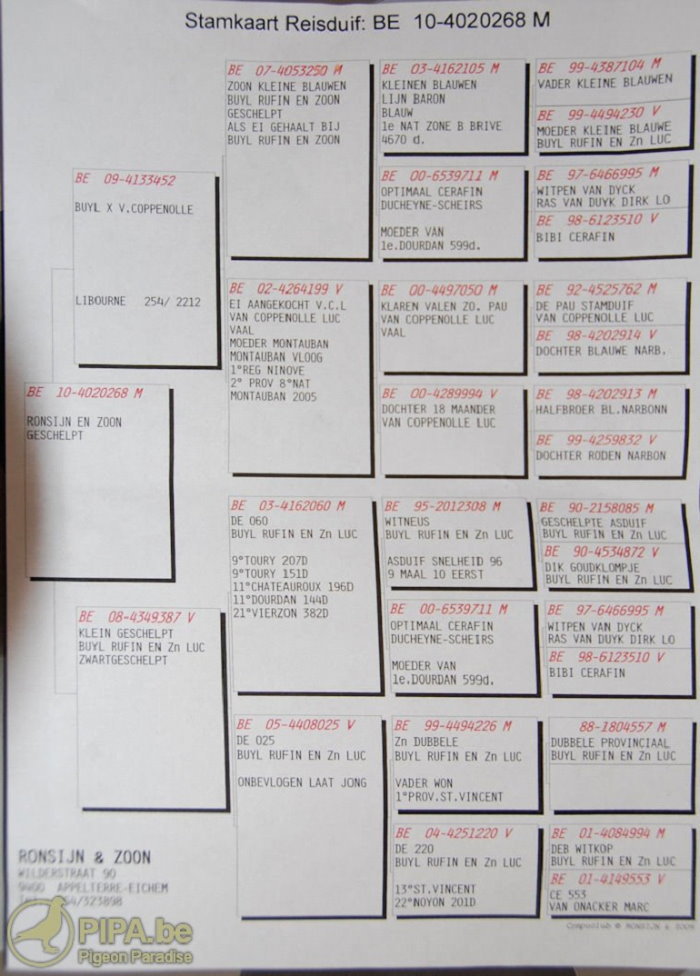 Stamkaart Reisduif: BE 10-4020268 M
BE 10-4020268 M
RONSIJN EN ZOON
GESCHELPT
BE 09-4133452
BUYL X V.COPPENOLLE
LIBOURNE 254/ 2212
BE 08-4349387 V
KLEIN GESCHELPT
BUYL RUFIN EN Zn LUC
ZWARTGESCHELPT
BE 07-4053250 M
ZOON KLEINE BLAUWEN
BUYL RUFIN EN ZOON
GESCHELPT
ALS EI GEHAALT BIJ
BUYL RUFIN EN ZOON
BE 02-4264199 V
EI AANGEKOCHT V.C.L
VAN COPPENOLLE LUC
VAAL
MOEDER MONTAUBAN
MONTAUBAN VLOOG
1°REG NINOVE
2° PROV 8°NAT
MONTAUBAN 2005
BE 03-4162060 M
DE 060
BUYL RUFIN EN Zn LUC
9°TOURY 207D
9°TOURY 151D
11°CHATEAUROUX 196D
11°DOURDAN 144D
21°VIERZON 382D
BE 05-4408025 V
DE 025
BUYL RUFIN EN Zn LUC
ONBEVLOGEN LAAT JONG
BE 03-4162105 M
KLEINEN BLAUWEN
LIJN BARON
BLAUW
1e NAT ZONE B BRIVE
4670 d.
BE 00-6539711 M
OPTIMAAL CERAFIN
DUCHEYNE-SCHEIRS
MOEDER VAN
1e.DOURDAN 599d.
BE 00-4497050 M
KLAREN VALEN ZO. PAU
VAN COPPENOLLE LUC
VAAL
BE 00-4289994 V
DOCHTER 18 MAANDER
VAN COPPENOLLE LUC
BE 95-2012308 M
WITNEUS
BUYL RUFIN EN Zn LUC
ASDUIF SNELHEID 96
9 MAAL 10 EERST
BE 00-6539711 M
OPTIMAAL CERAFIN
DUCHEYNE-SCHEIRS
MOEDER VAN
1e.DOURDAN 599d.
BE 99-4494226 M
Zn DUBBELE
BUYL RUFIN EN Zn LUC
VADER WON
1°PROV.ST.VINCENT
BE 04-4251220 V
DE 220
BUYL RUFIN EN Zn LUC
13°ST.VINCENT
22°NOYON 201D
BE 99-4387104 M
VADER KLEINE BLAUWEN
BE 99-4494230 V
MOEDER KLEINE BLAUWE
BUYL RUFIN EN Zn LUC
BE 97-6466995 M
WITPEN VAN DYCK
RAS VAN DUYK DIRK LO
BE 98-6123510 V
BIBI CERAFIN
BE 92-4525762 M
DE PAU STAMDUIF
VAN COPPENOLLE LUC
BE 98-4202914 V
DOCHTER BLAUWE NARB.
BE 98-4202913 M
HALFBROER BL.NARBONN
BE 99-4259832 V
DOCHTER RODEN NARBON
BE 90-2158085 M
GESCHELPTE ASDUIF
BUYL RUFIN EN Zn LUC
BE 90-4534872 V
DIK GOUDKLOMPJE
BUYL RUFIN EN Zn LUC
BE 97-6466995 M
WITPEN VAN DYCK
RAS VAN DUYK DIRK LO
BE 98-6123510 V
BIBI CERAFIN
88-1804557 M
DUBBELE PROVINCIAAL
BUYL RUFIN EN Zn LUC
BE 01-4084994 M
DEB WITKOP
BUYL RUFIN EN Zn LUC
BE 01-4149553 V
CE 553
VAN ONACKER MARC
RONSIJN & ZOON
WILDERSTRAAT 90
9400 APPELTERRE-EICHEM
54/323898
Compuclub © RONSIJN & ZOON
PIPA.be
Pigeon Paradise